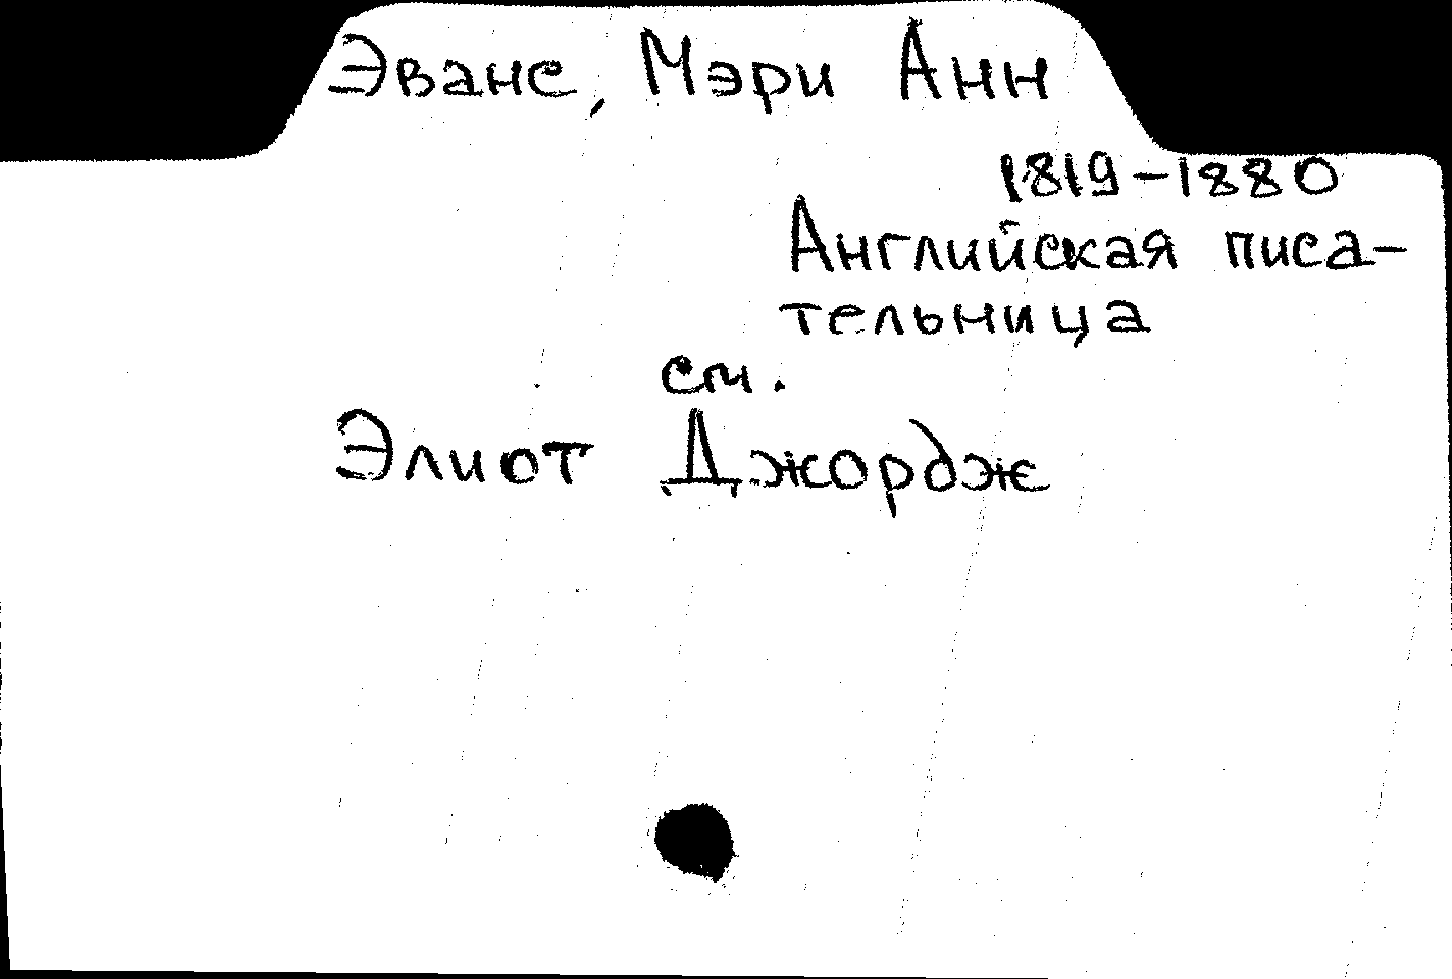 Эванс, Мэри Анн
1819-1880
Английская писа-
тельница
см.
Элиот Джордж